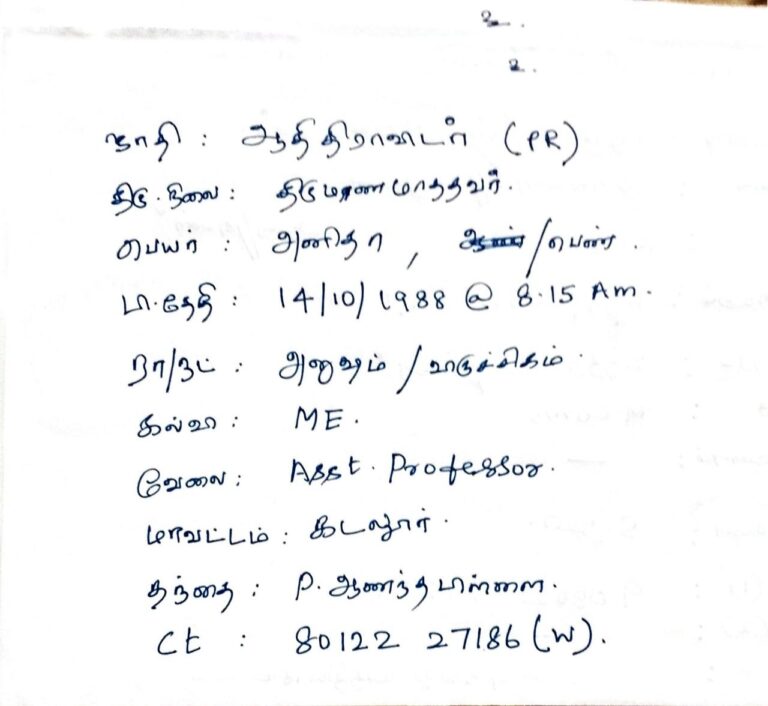 உ.
உ.
சாதி : ஆதிதிராவிடர் (PR)
திரு.நிலை : திருமணமாகாதவர்.
பெயர் : அனிதா , ஆண்/பெண் .
பி.தேதி : 14/10/1988 @ 8.15 Am.
ரா/நட் : அனுஷம் / விருச்சிகம்.
கல்வி : ME.
வேலை : Asst. Professor.
மாவட்டம் : கடலூர்.
தந்தை : P. ஆனந்தபிள்ளை.
Ct : 80122 27186 (W).